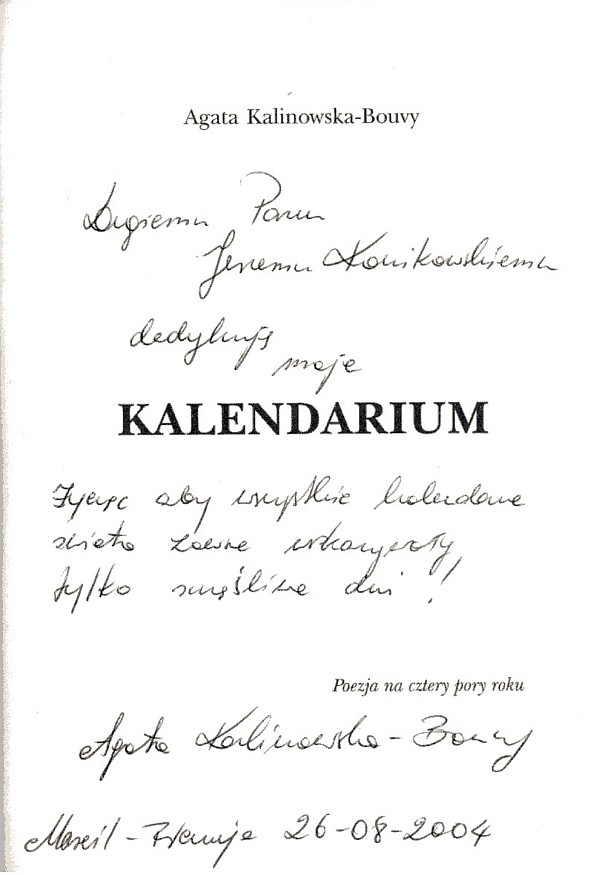 Agata Kalinowska-Bouvy
Drogiemu Panu
Jerzemu Konikowskiemu
dedykuję
moje
KALENDARIUM
Życząc aby wszystkie kalendarze
świata zawsze wskazywały
tylko szczęśliwe dni!
Poezja na cztery pory roku
Agata Kalinowska-Bouvy
Francja 26-08-2004